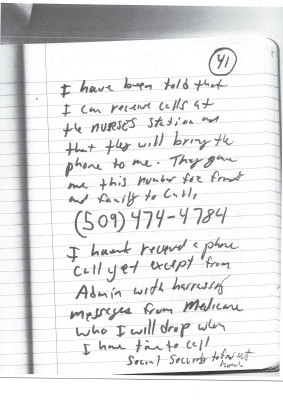 41
I have been told that
I can receive calls at
the NURSES station and
that they will bring the
phone to me. They gave
me this number for friends
and family to call,
(509) 474-4784
I haven't received a phone
call yet except from
Admin with harrassing
messages from Medicare
who I will drop when
I have time to call
Social Security to